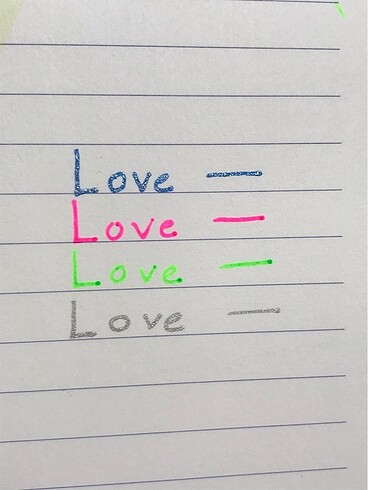 Love —
Love —
Love —
Love —